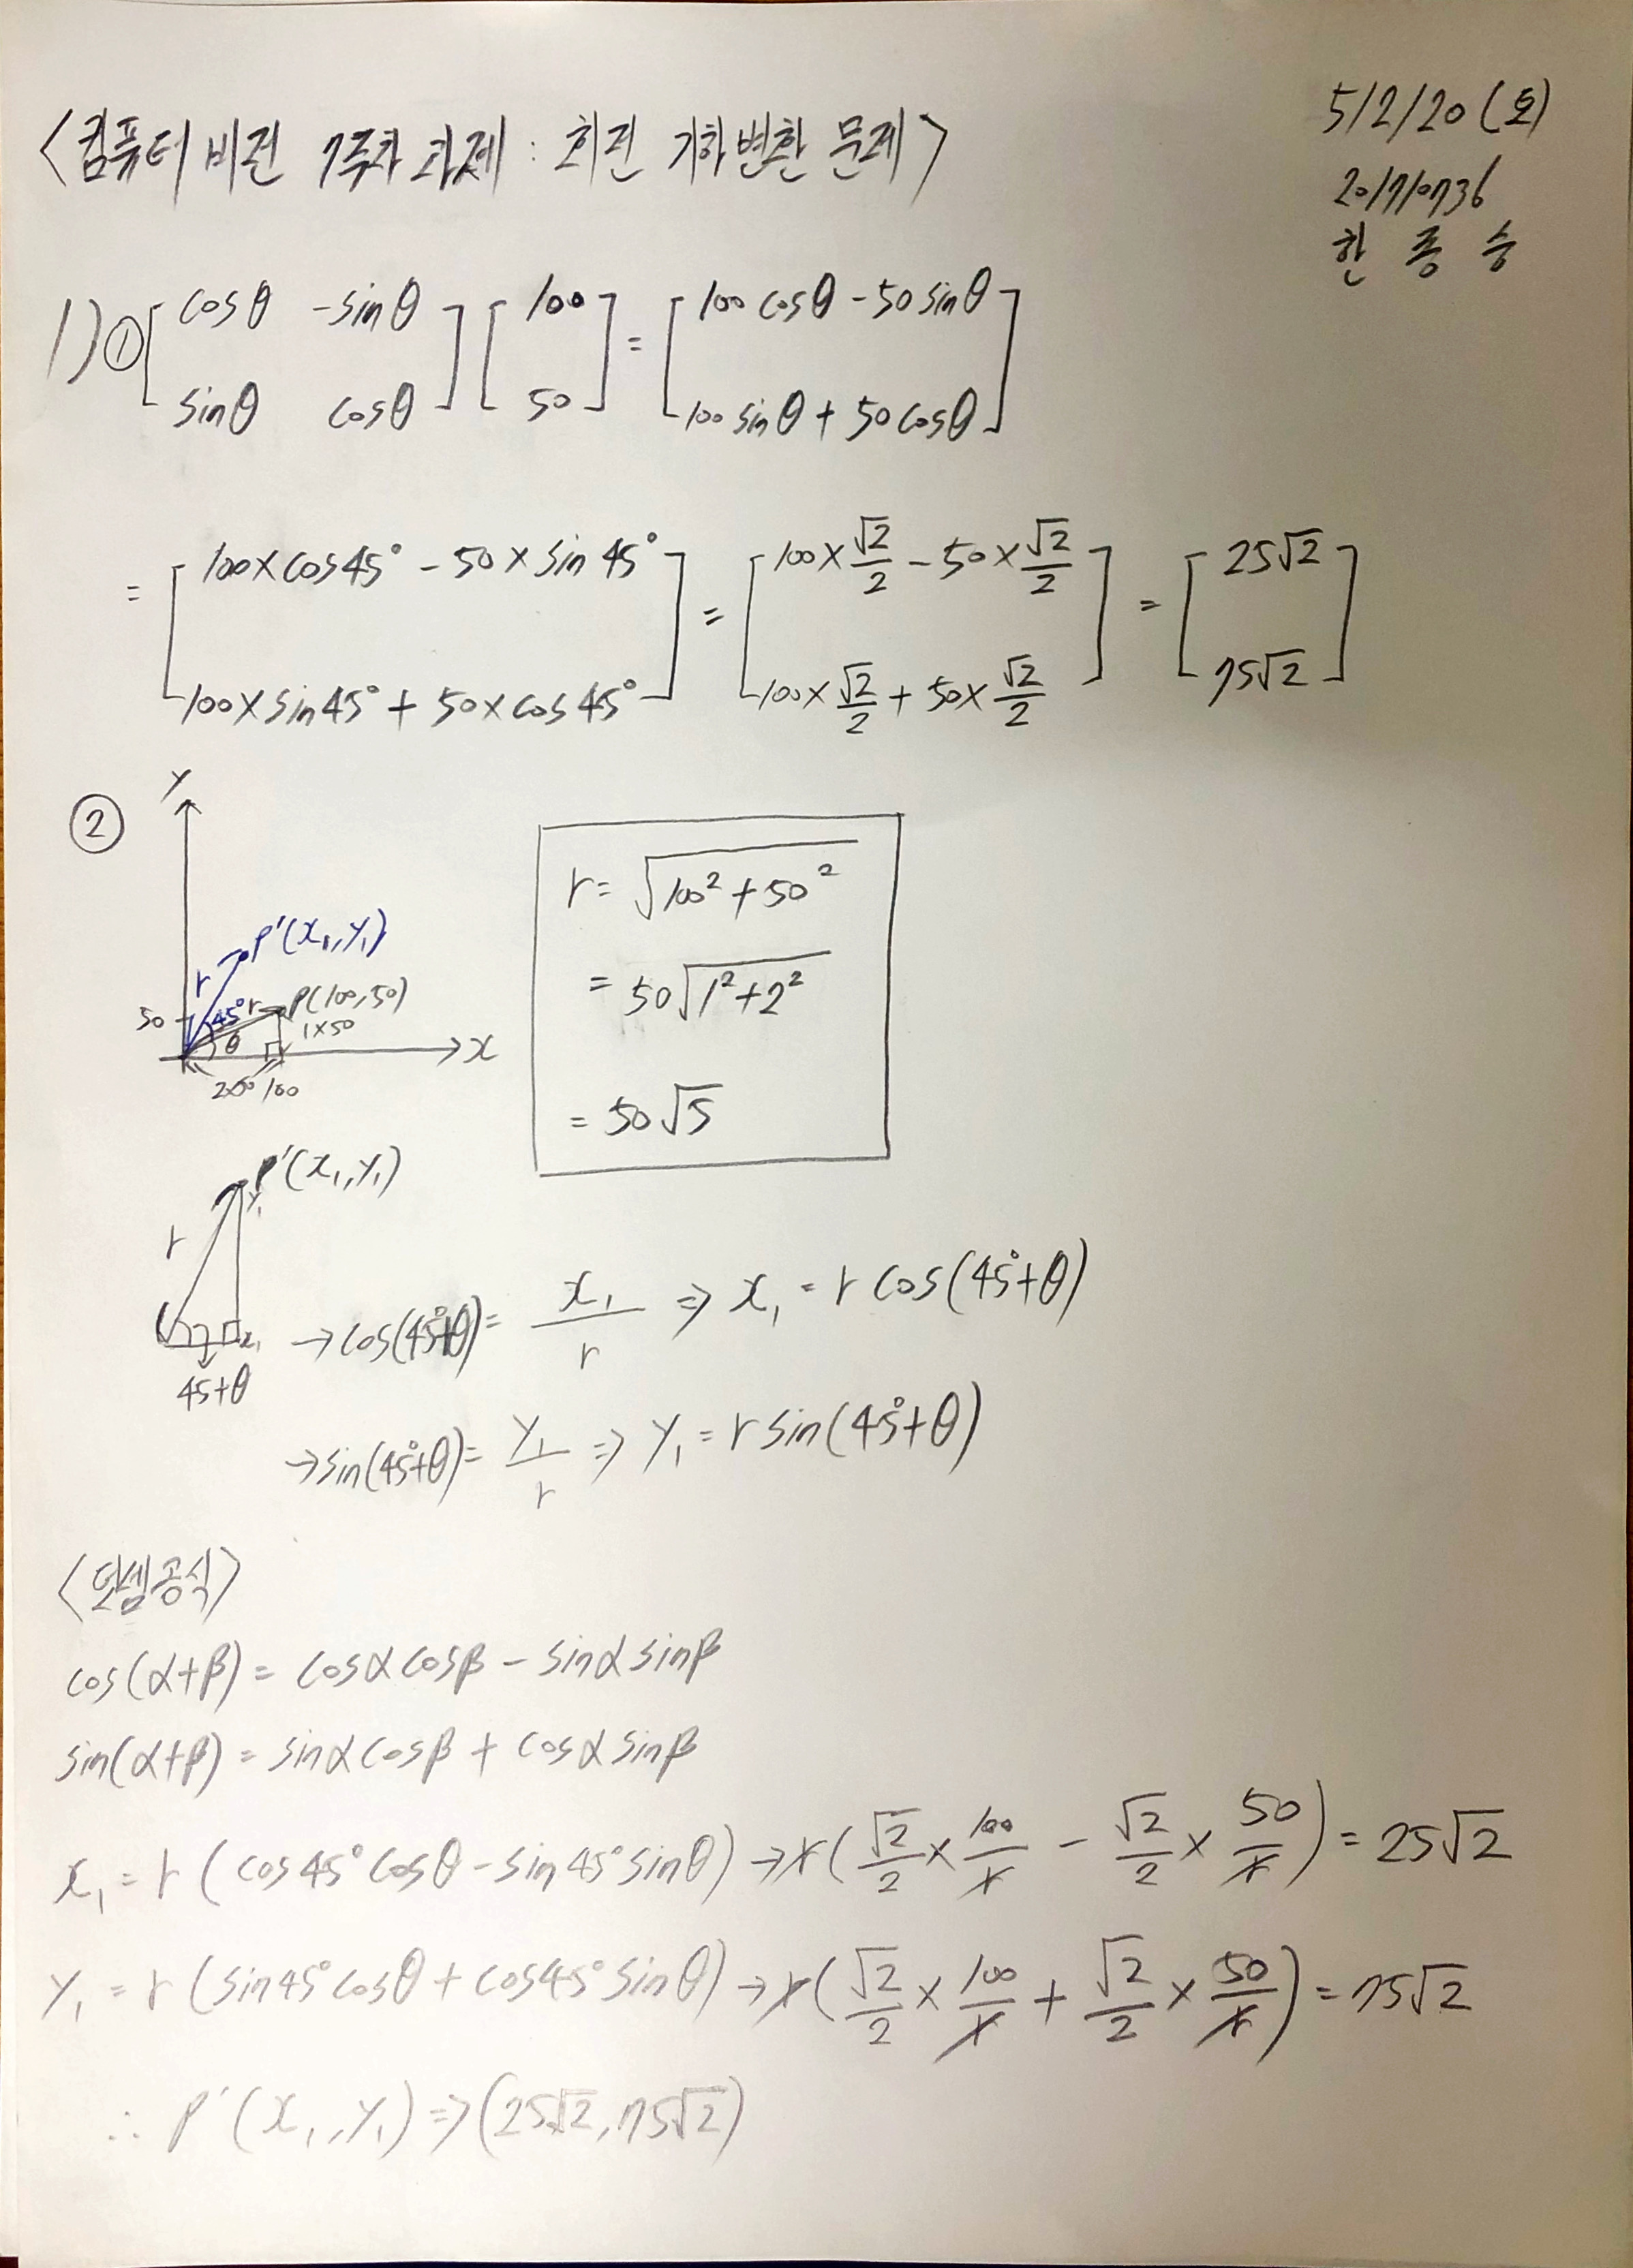 <컴퓨터 비전 7주차 과제 : 회전 기하 변환 문제>
5/2/20 (토)
201710736
한종승
1) ① [cosθ -sinθ; sinθ cosθ] [100; 50] = [100cosθ - 50sinθ; 100sinθ + 50cosθ]
= [100×cos45° - 50×sin45°; 100×sin45° + 50×cos45°] = [100×√2/2 - 50×√2/2; 100×√2/2 + 50×√2/2] = [25√2; 75√2]
②
y
P'(x₁,y₁)
r
45°
r
P(100,50)
50
1×50
θ
x
100
r = √(100² + 50²)
= 50√(1² + 2²)
= 50√5
P'(x₁,y₁)
y₁
r
x₁
45+θ
→ cos(45°+θ) = x₁/r ⇒ x₁ = r cos(45°+θ)
→ sin(45°+θ) = y₁/r ⇒ y₁ = r sin(45°+θ)
<덧셈공식>
cos(α+β) = cosαcosβ - sinαsinβ
sin(α+β) = sinαcosβ + cosαsinβ
x₁ = r (cos45°cosθ - sin45°sinθ) → r(√2/2 × 100/r - √2/2 × 50/r) = 25√2
y₁ = r (sin45°cosθ + cos45°sinθ) → r(√2/2 × 100/r + √2/2 × 50/r) = 75√2
∴ P'(x₁,y₁) ⇒ (25√2, 75√2)